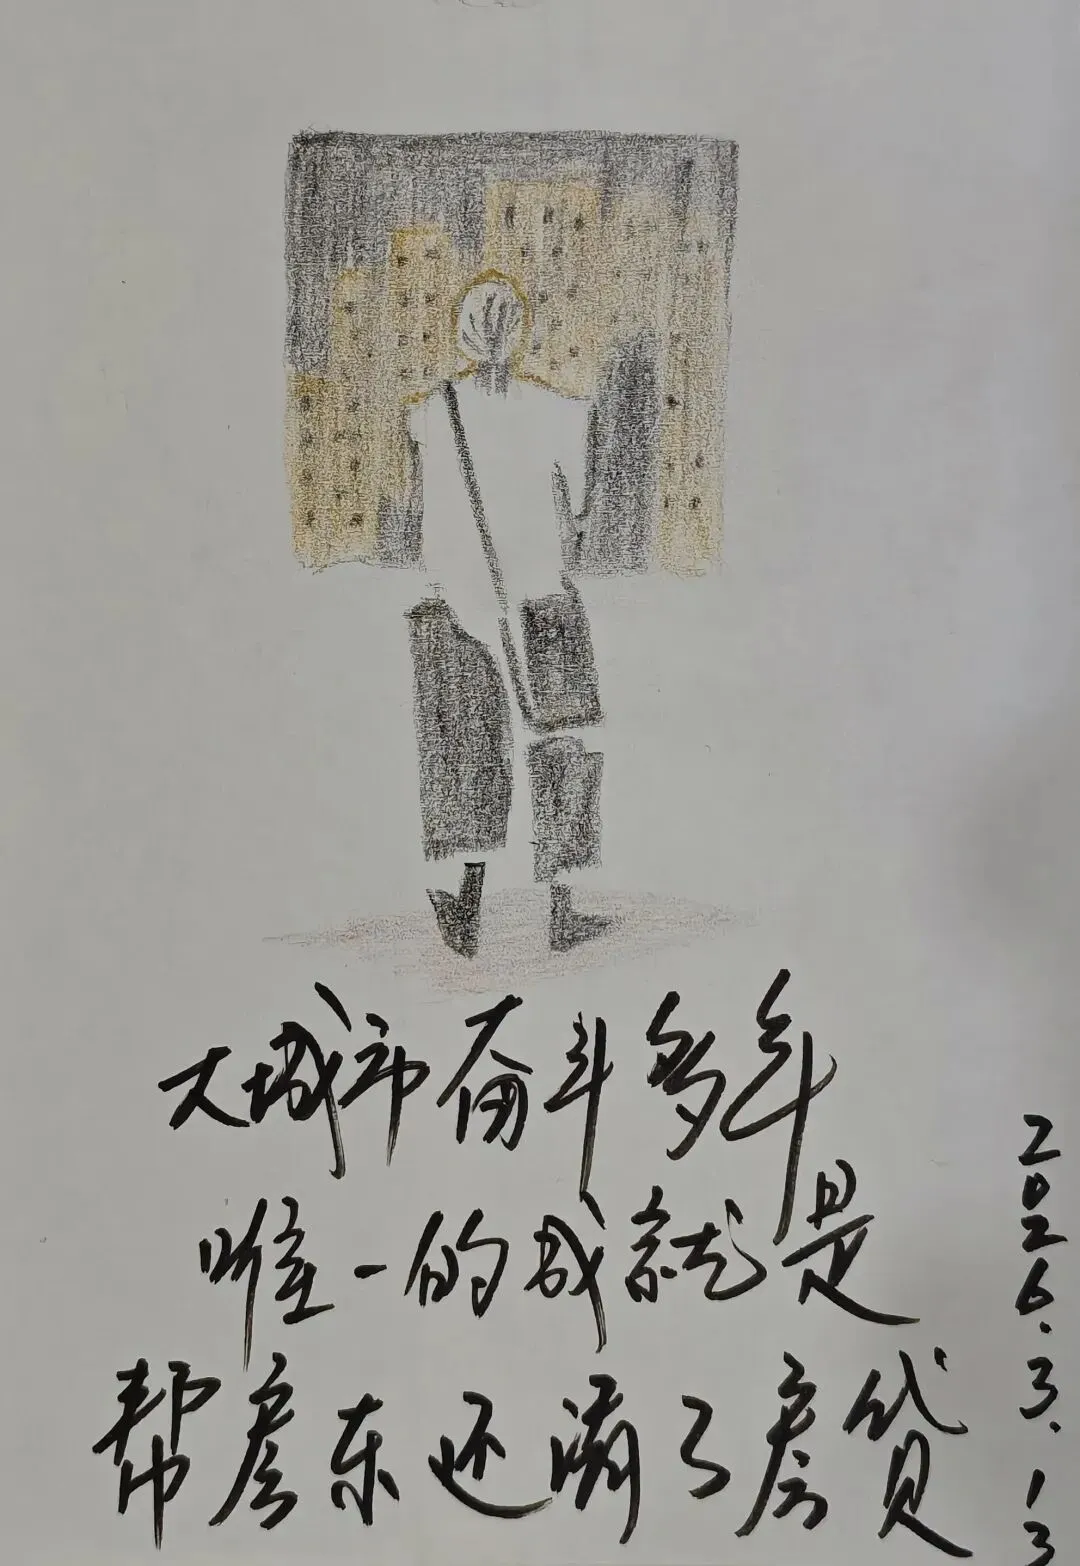 大城市奋斗多年
唯一的成就是
帮房东还满了房贷
2026.3.13